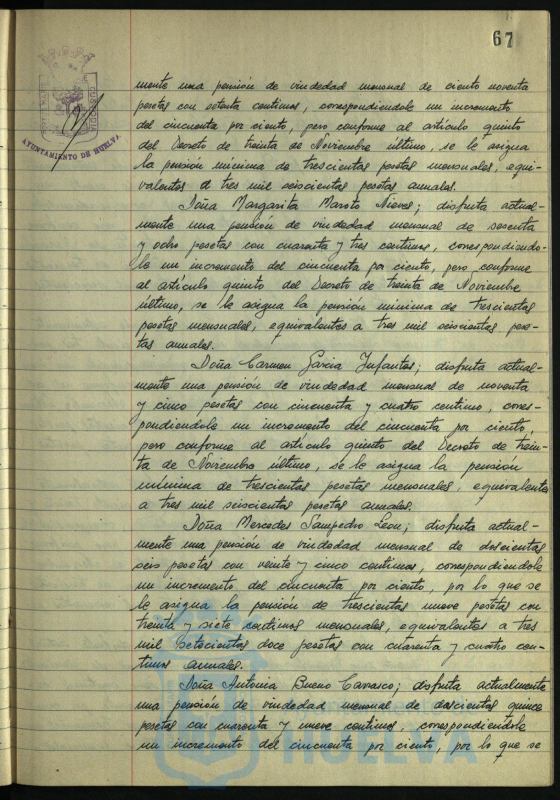 67
CUSTODIA
AYUNTAMIENTO DE HUELVA
mente una pensión de viudedad mensual de ciento noventa
pesetas con setenta centimos, correspondiendole un incremento
del cincuenta por ciento, pero conforme al artículo quinto
del Decreto de treinta de Noviembre último, se le asigna
la pensión minima de trescientas pesetas mensuales, equi-
valentes a tres mil seiscientas pesetas anuales.
Doña Margarita Maroto Nieves; disfruta actual-
mente una pensión de viudedad mensual de sesenta
y ocho pesetas con cuarenta y tres centimos, correspondiendo-
le un incremento del cincuenta por ciento, pero conforme
al artículo quinto del Decreto de treinta de Noviembre
último, se le asigna la pensión minima de trescientas
pesetas mensuales, equivalentes a tres mil seiscientas pese-
tas anuales.
Doña Carmen Garcia Infantes; disfruta actual-
mente una pensión de viudedad mensual de noventa
y cinco pesetas con cincuenta y cuatro centimo, corres-
pondiendole un incremento del cincuenta por ciento,
pero conforme al artículo quinto del Decreto de trein-
ta de Noviembre último, se le asigna la pensión
minima de trescientas pesetas mensuales, equivalentes
a tres mil seiscientas pesetas anuales.
Doña Mercedes Sampedro Leon; disfruta actual-
mente una pensión de viudedad mensual de doscientas
seis pesetas con veinte y cinco centimos, correspondiendole
un incremento del cincuenta por ciento, por lo que se
le asigna la pensión de trescientas nueve pesetas con
treinta y siete centimos mensuales, equivalentes a tres
mil setecientas doce pesetas con cuarenta y cuatro cen-
timos anuales.
Doña Antonia Bueno Carrasco; disfruta actualmente
una pensión de viudedad mensual de doscientas quince
pesetas con cuarenta y nueve centimos, correspondiendole
un incremento del cincuenta por ciento, por lo que se
HUELVA